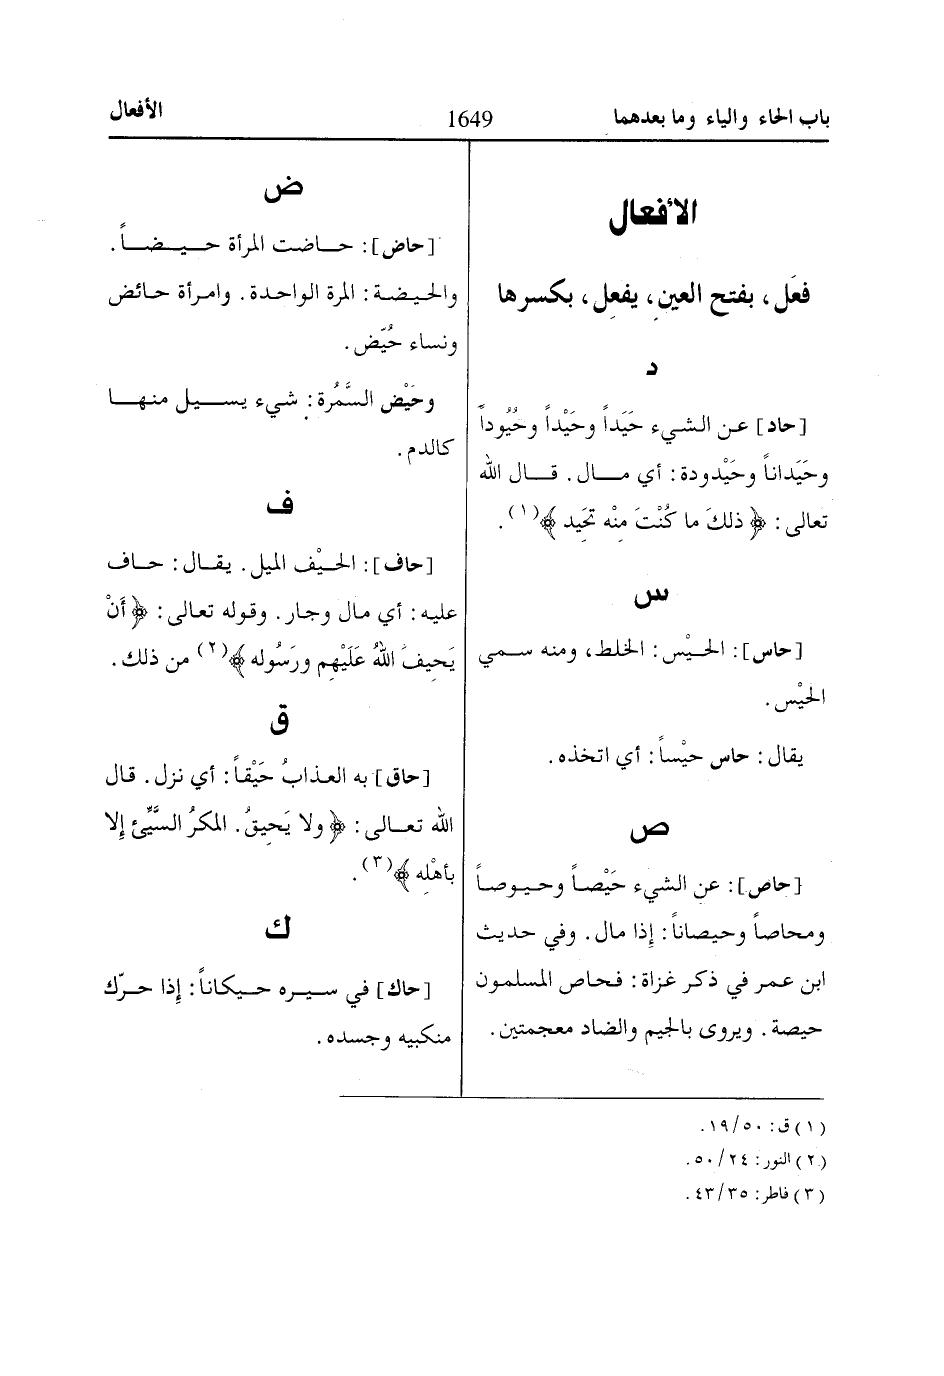 باب الحاء والياء وما بعدهما
1649
الأفعال
الأفعال
فعَل، بفتح العين، يفعِل، بكسرها
د
[حاد] عن الشيء حَيَداً وحَيْداً وحُيُوداً
وحَيَداناً وحَيْدودة: أي مال. قال الله
تعالى: ﴿ ذلكَ ما كُنْتَ مِنْه تَحِيد ﴾(١).
س
[حاس]: الحَيْس: الخلط، ومنه سمي
الحيْس.
يقال: حاس حيْساً: أي اتخذه.
ص
[حاص]: عن الشيء حَيْصاً وحيوصاً
ومحاصاً وحيصاناً: إذا مال. وفي حديث
ابن عمر في ذكر غزاة: فحاص المسلمون
حيصة. ويروى بالجيم والضاد معجمتين.
ض
[حاض]: حاضت المرأة حيضاً.
والحيضة: المرة الواحدة. وامرأة حائض
ونساء حُيَّض.
وحَيْض السَّمُرة: شيء يسيل منها
كالدم.
ف
[حاف]: الحَيْف الميل. يقال: حاف
عليه: أي مال وجار. وقوله تعالى: ﴿ أَنْ
يَحِيفَ اللهُ عَلَيْهِم ورَسُوله ﴾(٢) من ذلك.
ق
[حاق] به العذابُ حَيْقاً: أي نزل. قال
الله تعالى: ﴿ ولا يَحِيقُ. المكرُ السَّيِّئ إلا
بأهْلِه ﴾(٣).
ك
[حاك] في سيره حيكاناً: إذا حرّك
منكبيه وجسده.
(١) ق: ١٩/٥٠.
(٢) النور: ٥٠/٢٤.
(٣) فاطر: ٤٣/٣٥.